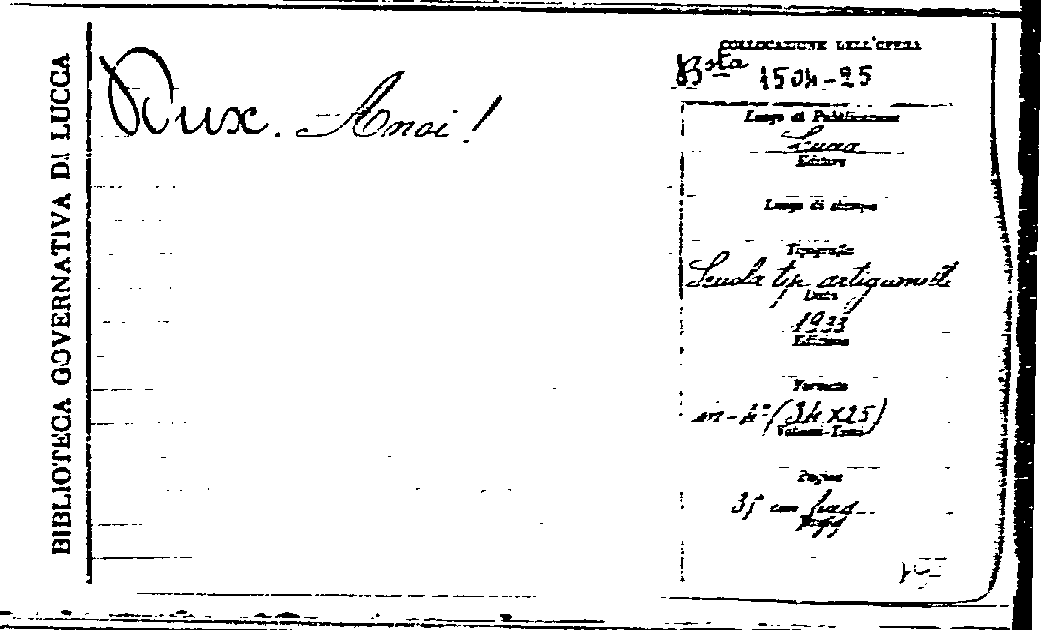 BIBLIOTECA GOVERNATIVA DI LUCCA
Dux. A noi!
COLLOCAZIONE DELL'OPERA
Bsta 1504-25
Luogo di Pubblicazione
Lucca
Editore
Luogo di stampa
Tipografia
Scuola tip. artigianelli
Data
1933
Edizione
Formato
in-4° (34x25)
Volumi-Tomi
Pagine
35 con